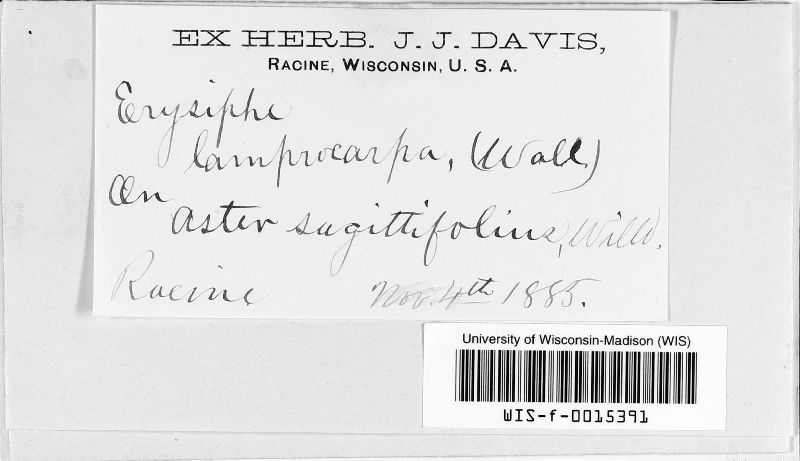 EX HERB. J. J. DAVIS,
RACINE, WISCONSIN, U. S. A.
Erysiphe
lamprocarpa, (Wall.)
On
Aster sagittifolius, Willd.
Racine Nov. 4th 1885.
University of Wisconsin-Madison (WIS)
WIS-f-0015391